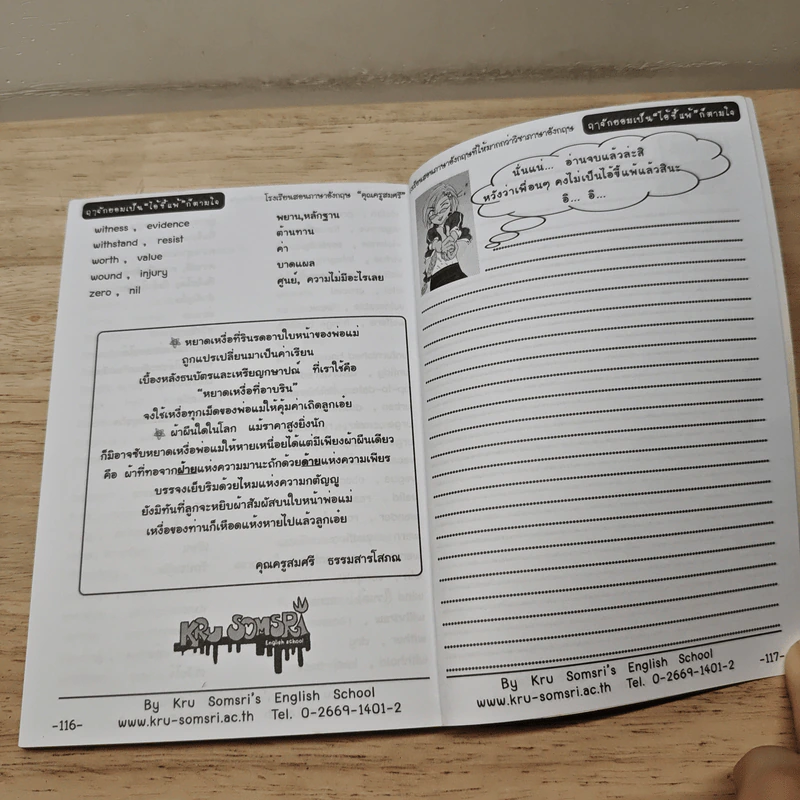 ฤาจักยอมเป็น"ไอ้ขี้แพ้"ก็ตามใจ
โรงเรียนสอนภาษาอังกฤษ "คุณครูสมศรี"
witness , evidence พยาน,หลักฐาน
withstand , resist ต้านทาน
worth , value ค่า
wound , injury บาดแผล
zero , nil ศูนย์, ความไม่มีอะไรเลย
หยาดเหงื่อที่รินรดอาบใบหน้าของพ่อแม่
ถูกแปรเปลี่ยนมาเป็นค่าเรียน
เบื้องหลังธนบัตรและเหรียญกษาปณ์ ที่เราใช้คือ
"หยาดเหงื่อที่อาบริน"
จงใช้เหงื่อทุกเม็ดของพ่อแม่ให้คุ้มค่าเถิดลูกเอ๋ย
ผ้าผืนใดในโลก แม้ราคาสูงยิ่งนัก
ก็มิอาจซับหยาดเหงื่อพ่อแม่ให้หายเหนื่อยได้แต่มีเพียงผ้าผืนเดียว
คือ ผ้าที่ทอจากฝ้ายแห่งความมานะถักด้วยด้ายแห่งความเพียร
บรรจงเย็บริมด้วยไหมแห่งความกตัญญู
ยังมิทันที่ลูกจะหยิบผ้าสัมผัสบนใบหน้าพ่อแม่
เหงื่อของท่านก็เหือดแห้งหายไปแล้วลูกเอ๋ย
คุณครูสมศรี ธรรมสารโสภณ
KRU SOMSRI
English School
By Kru Somsri's English School
-116- www.kru-somsri.ac.th Tel. 0-2669-1401-2
โรงเรียนสอนภาษาอังกฤษที่ให้มากกว่าวิชาภาษาอังกฤษ
ฤาจักยอมเป็น"ไอ้ขี้แพ้"ก็ตามใจ
นั่นแน่... อ่านจบแล้วล่ะสิ
หวังว่าเพื่อนๆ คงไม่เป็นไอ้ขี้แพ้แล้วสินะ
อิ... อิ...
By Kru Somsri's English School
www.kru-somsri.ac.th Tel. 0-2669-1401-2 -117-